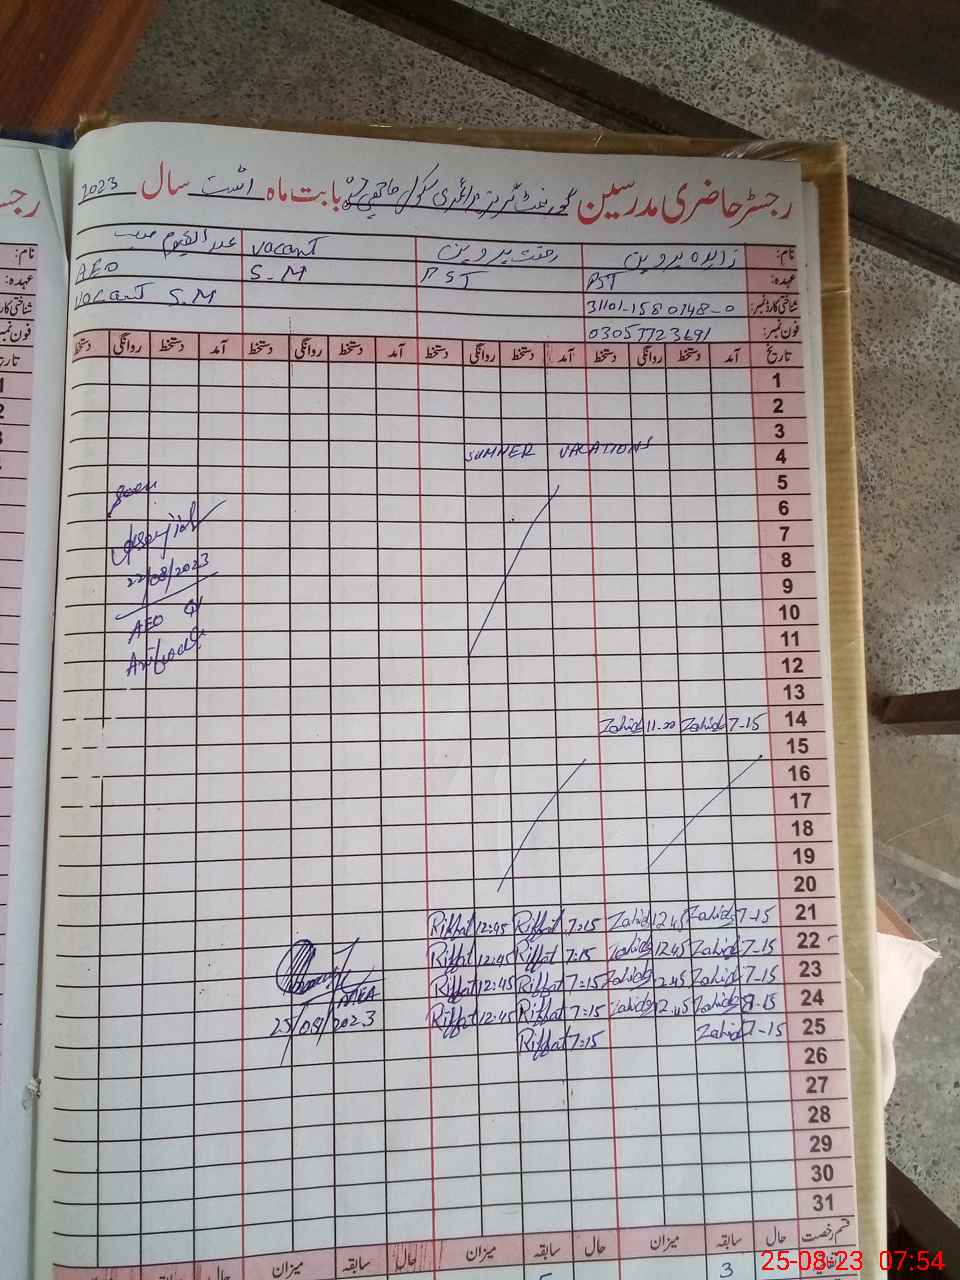 رجسٹر حاضری مدرسین گورنمنٹ گرلز پرائمری سکول بابت ماہ اگست سال 2023
نام: زاہدہ پروین رفعت پروین vacant
عہدہ: PST PST S.M AEO
شناختی کارڈ نمبر: 31101-1580748-0 vacant S.M
فون نمبر:
تاریخ آمد دستخط روانگی دستخط آمد دستخط روانگی دستخط آمد دستخط روانگی دستخط آمد دستخط روانگی دستخط
1
2
3
4 SUMMER VACATIONS
5 Seen
6
7
8 22/08/2023
9
10 AEO
11
12
13
14 Zahida 11-20 Zahida 7-15
15
16
17
18
19
20
21 Riffat 12:45 Riffat 7:15 Zahida 12.45 Zahida 7-15
22 Riffat 12:45 Riffat 7:15 Zahida 12.45 Zahida 7-15
23 Riffat 12:45 Riffat 7:15 Zahida 12.45 Zahida 7-15
24 Riffat 12:45 Riffat 7:15 Zahida 12.45 Zahida 7-15
25 Riffat 7:15 Zahida 7-15
MEA
25/08/2023
26
27
28
29
30
31
قسم رخصت حال سابقہ میزان حال سابقہ میزان حال سابقہ میزان حال سابقہ
3
25-08-23 07:54